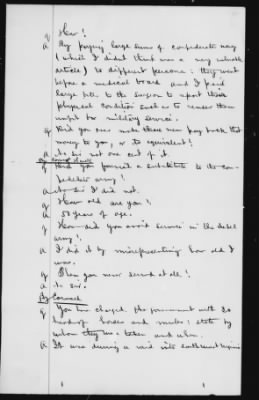 Q How?
A By paying large sums of confederate money
(which I didn't think was a very valuable
article) to different persons: they went
before a medical board and I paid
large fees to the surgeon to report their
physical condition such as to render them
unfit for military service.
Q Did you ever make these men pay back that
money to you, or its equivalent?
A No sir not one cent of it.
Q Did you furnish a substitute to the con-
federate army?
A No Sir I did not.
Q How old are you?
A 58 years of age.
Q How did you avoid service in the rebel
army?
A I did it by misrepresenting how old I
was.
Q Then you never served at all?
A No Sir.
By Counsel
Q You have charged the government with 20
head of horses and mules: state by
whom they were taken and when.
A It was during a raid into southwest Virginia